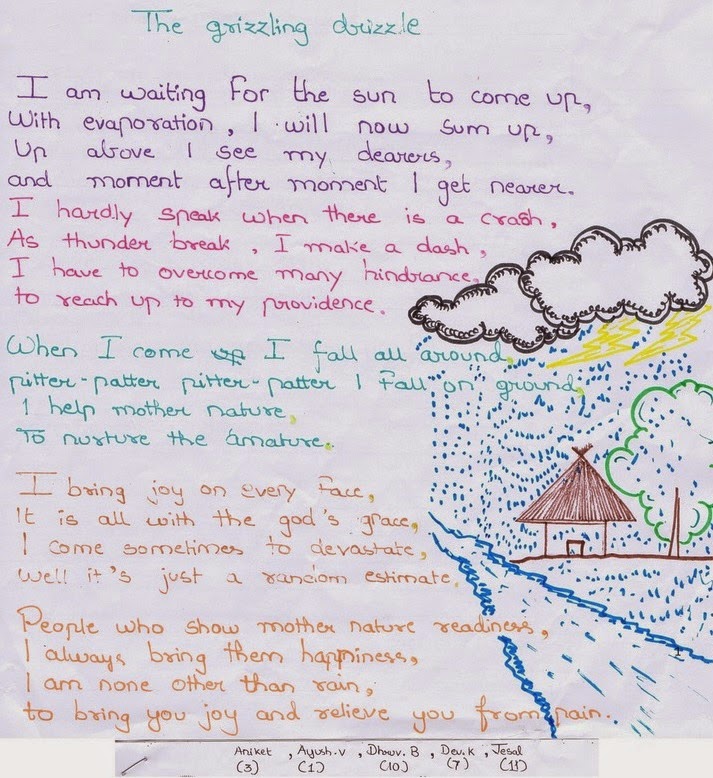 The grizzling drizzle
I am waiting for the sun to come up,
With evaporation, I will now sum up,
Up above I see my dearers,
and moment after moment I get nearer.
I hardly speak when there is a crash,
As thunder break, I make a dash,
I have to overcome many hindrance,
to reach up to my providence.
When I come I fall all around,
pitter-patter pitter-patter I fall on ground,
I help mother nature,
To nurture the amature.
I bring joy on every face,
It is all with the god's grace,
I come sometimes to devastate,
Well it's just a random estimate.
People who show mother nature readiness,
I always bring them happiness,
I am none other than rain,
to bring you joy and relieve you from pain.
Aniket , Ayush.v , Dhruv.B , Dev.K , Jesal
(3) (1) (10) (7) (11)